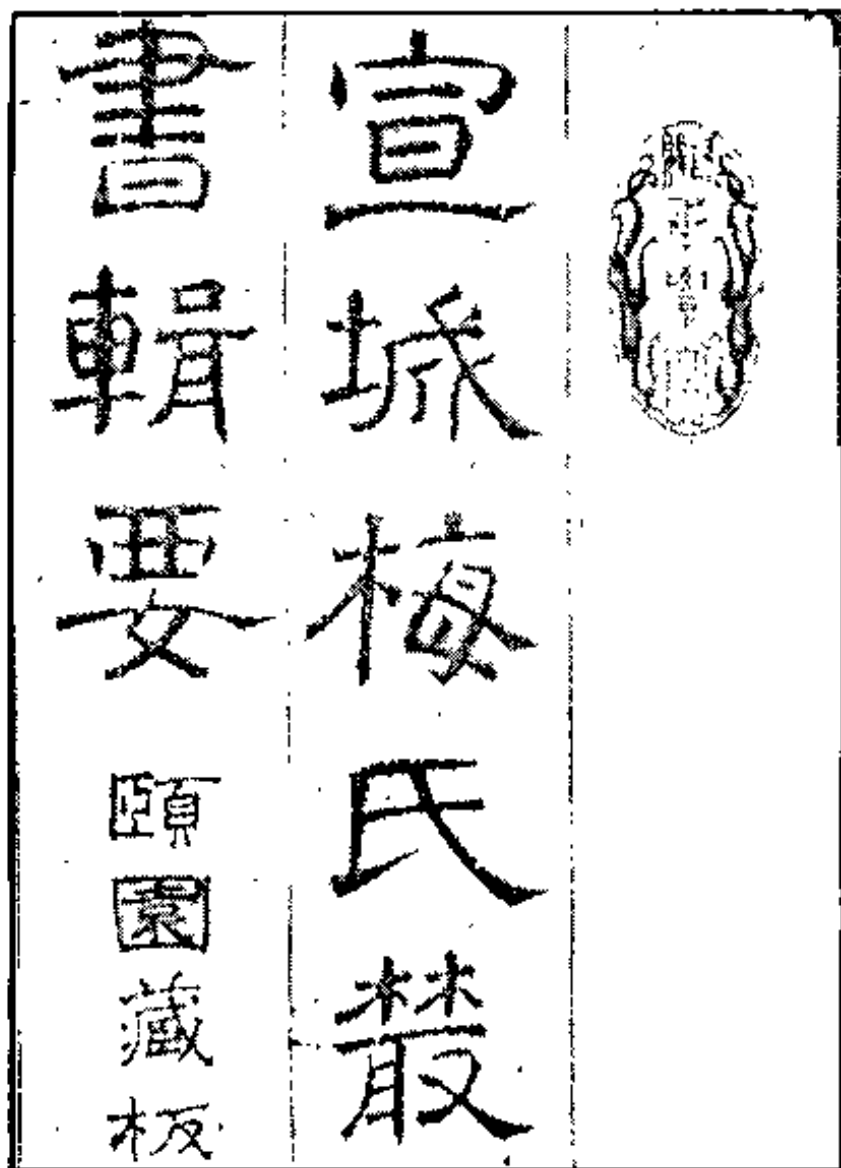 宣城梅氏叢
書輯要 頤園藏板